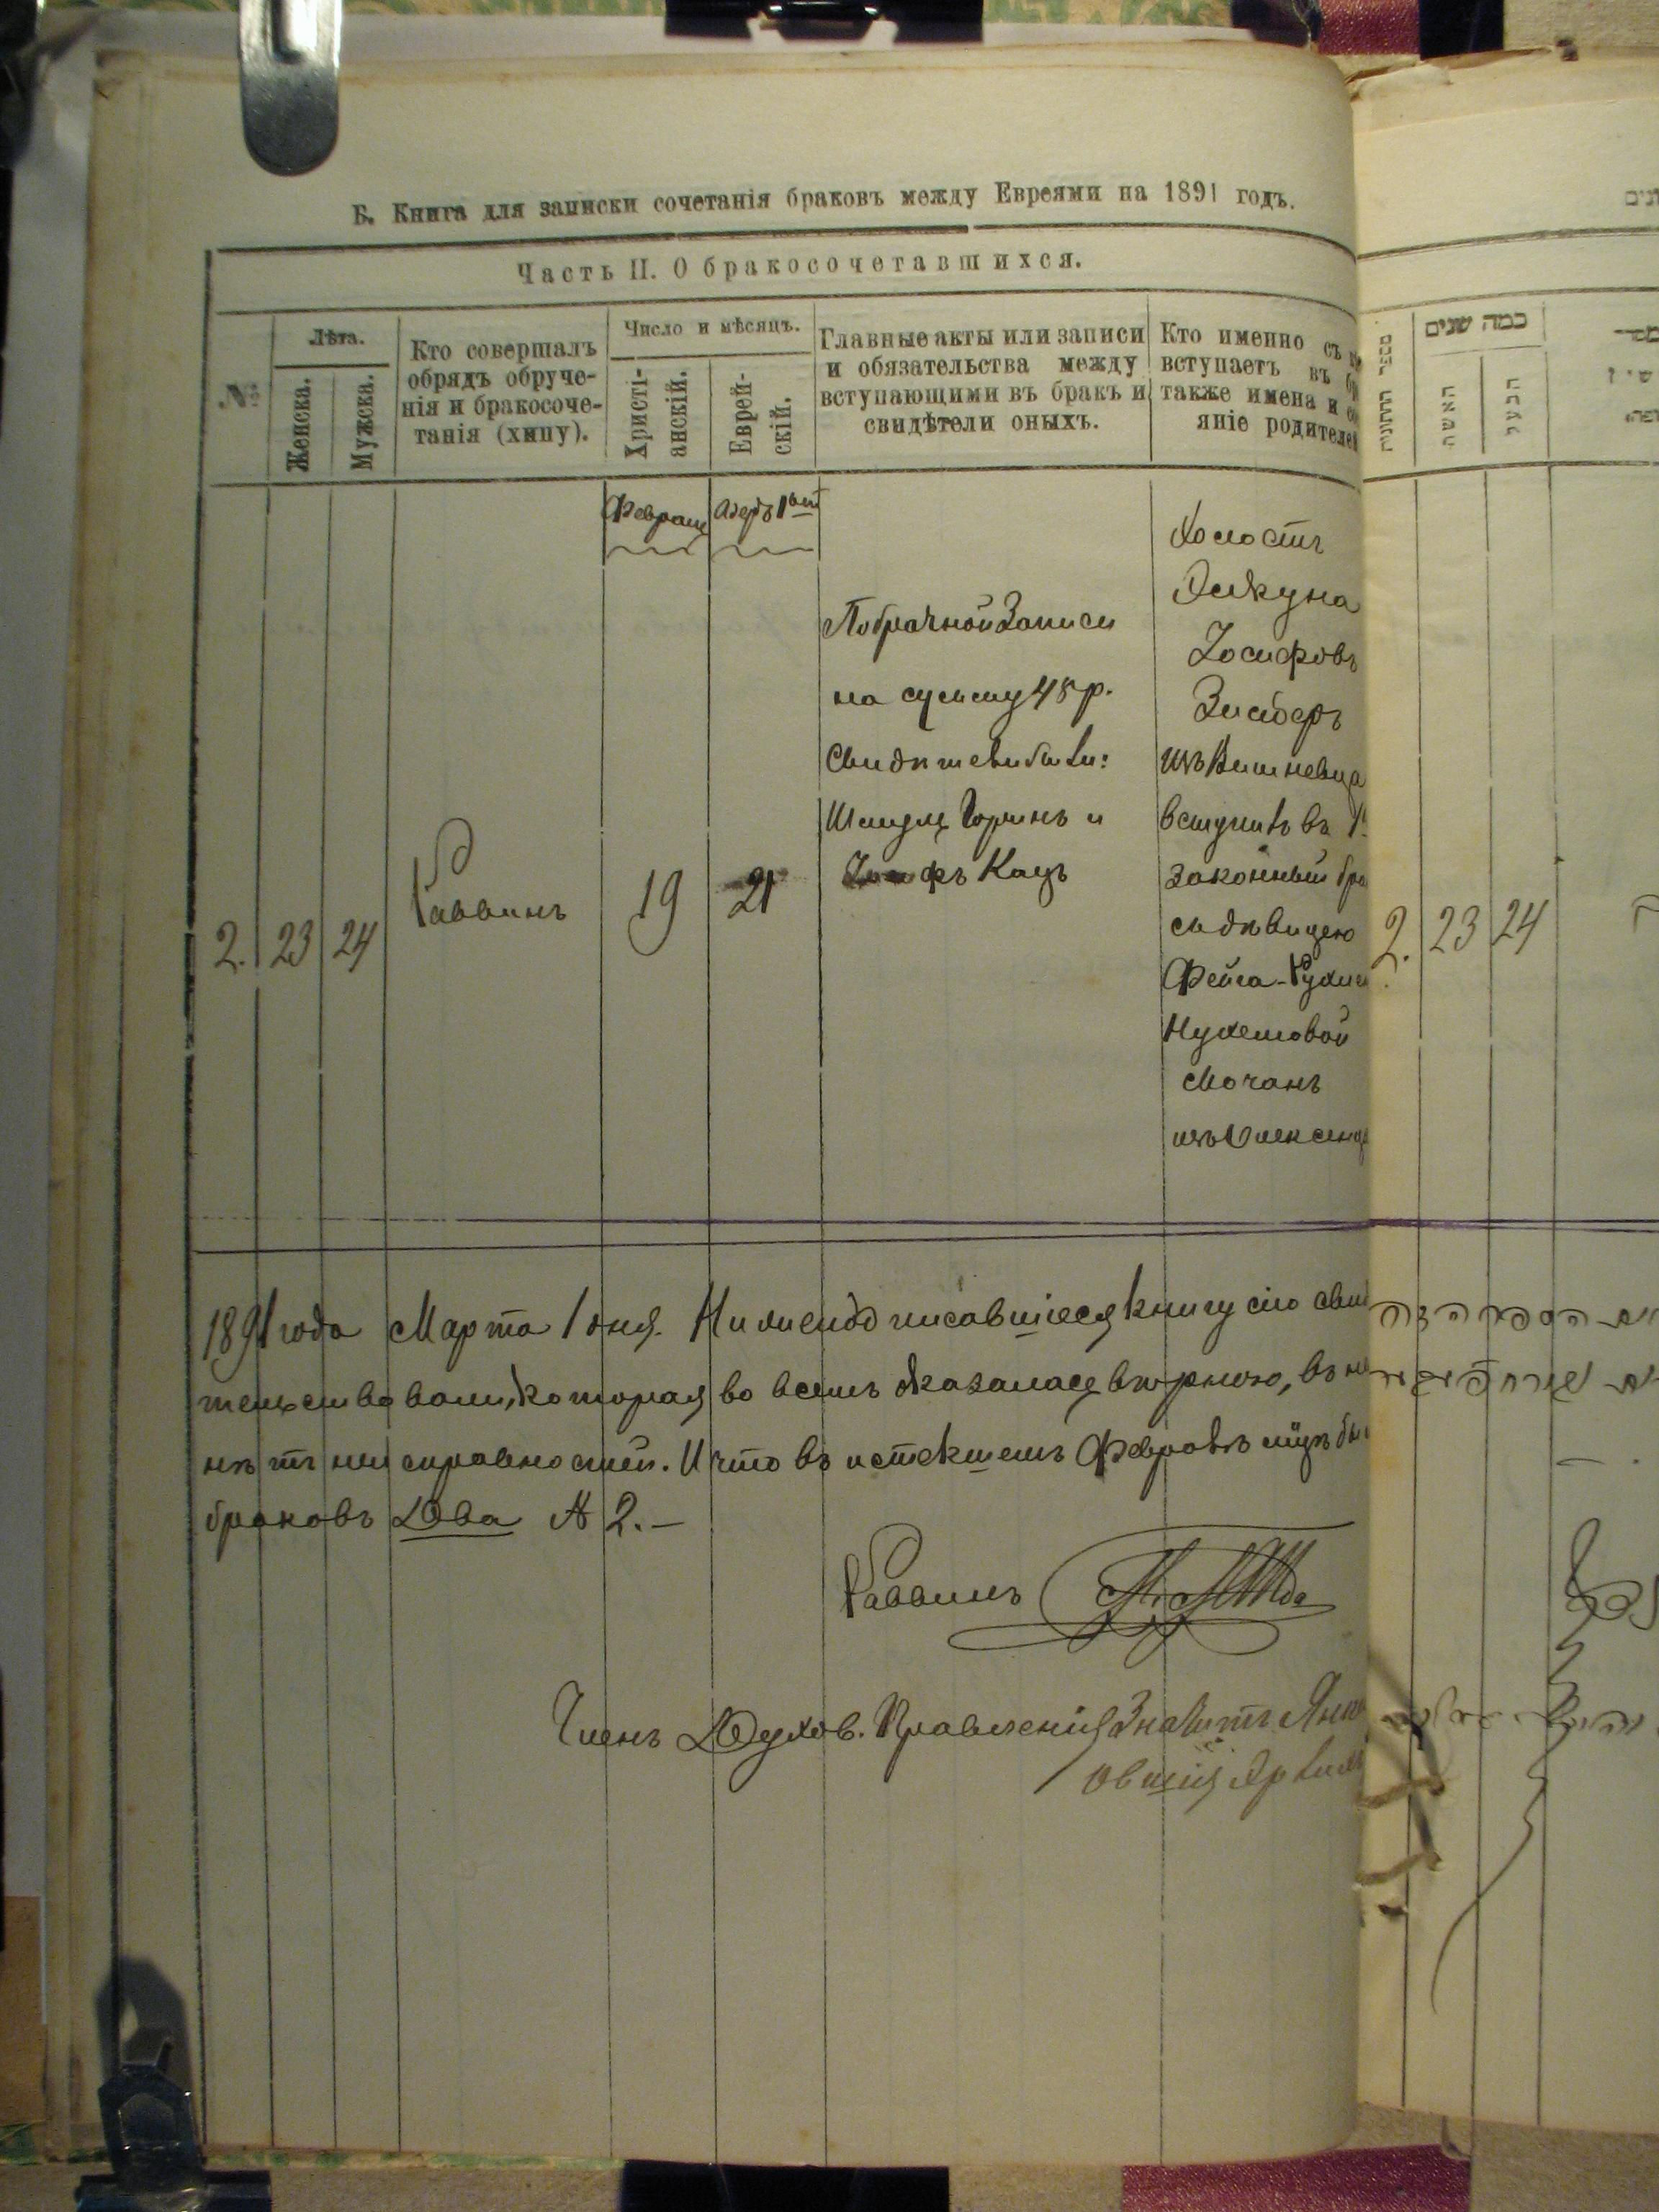 Б. Книга для записки сочетанія браковъ между Евреями на 1891 годъ.
Часть II. О бракосочетавшихся.
№
Лѣта.
Женска.
Мужска.
Кто совершалъ
обрядъ обруче-
нія и бракосоче-
танія (хипу).
Число и мѣсяцъ.
Христі-
анскій.
Еврей-
скій.
Главные акты или записи
и обязательства между
вступающими въ бракъ и
свидѣтели оныхъ.
Кто именно съ
вступаетъ въ
также имена и
яніе родителей
מספר החתונות
כמה שנים
האשה
הבעל
Адеръ 1
2.
23
24
Раввинъ
19
21
По брачной Записи
на сумму 48 р.
Свидѣтели были:
Шмуль Горинъ и
Іосифъ Кацъ
Холостъ
Іосифовъ
Зильберъ
изъ Вишневца
вступилъ въ 1
законный бра
съ дѣвицею
Фейга-Рухли
Нухемовой
Мочанъ
изъ Олексинц
2. 23 24
1891 года Марта 1 дня. Нижеподписавшіеся книгу сію свидѣ
тельствовали, которая во всемъ оказалась вѣрною, въ не
нѣтъ неисправностей. И что въ истекшемъ Февралѣ мцѣ бы
браковъ Два № 2.—
Раввинъ
Членъ Духов. Правленія